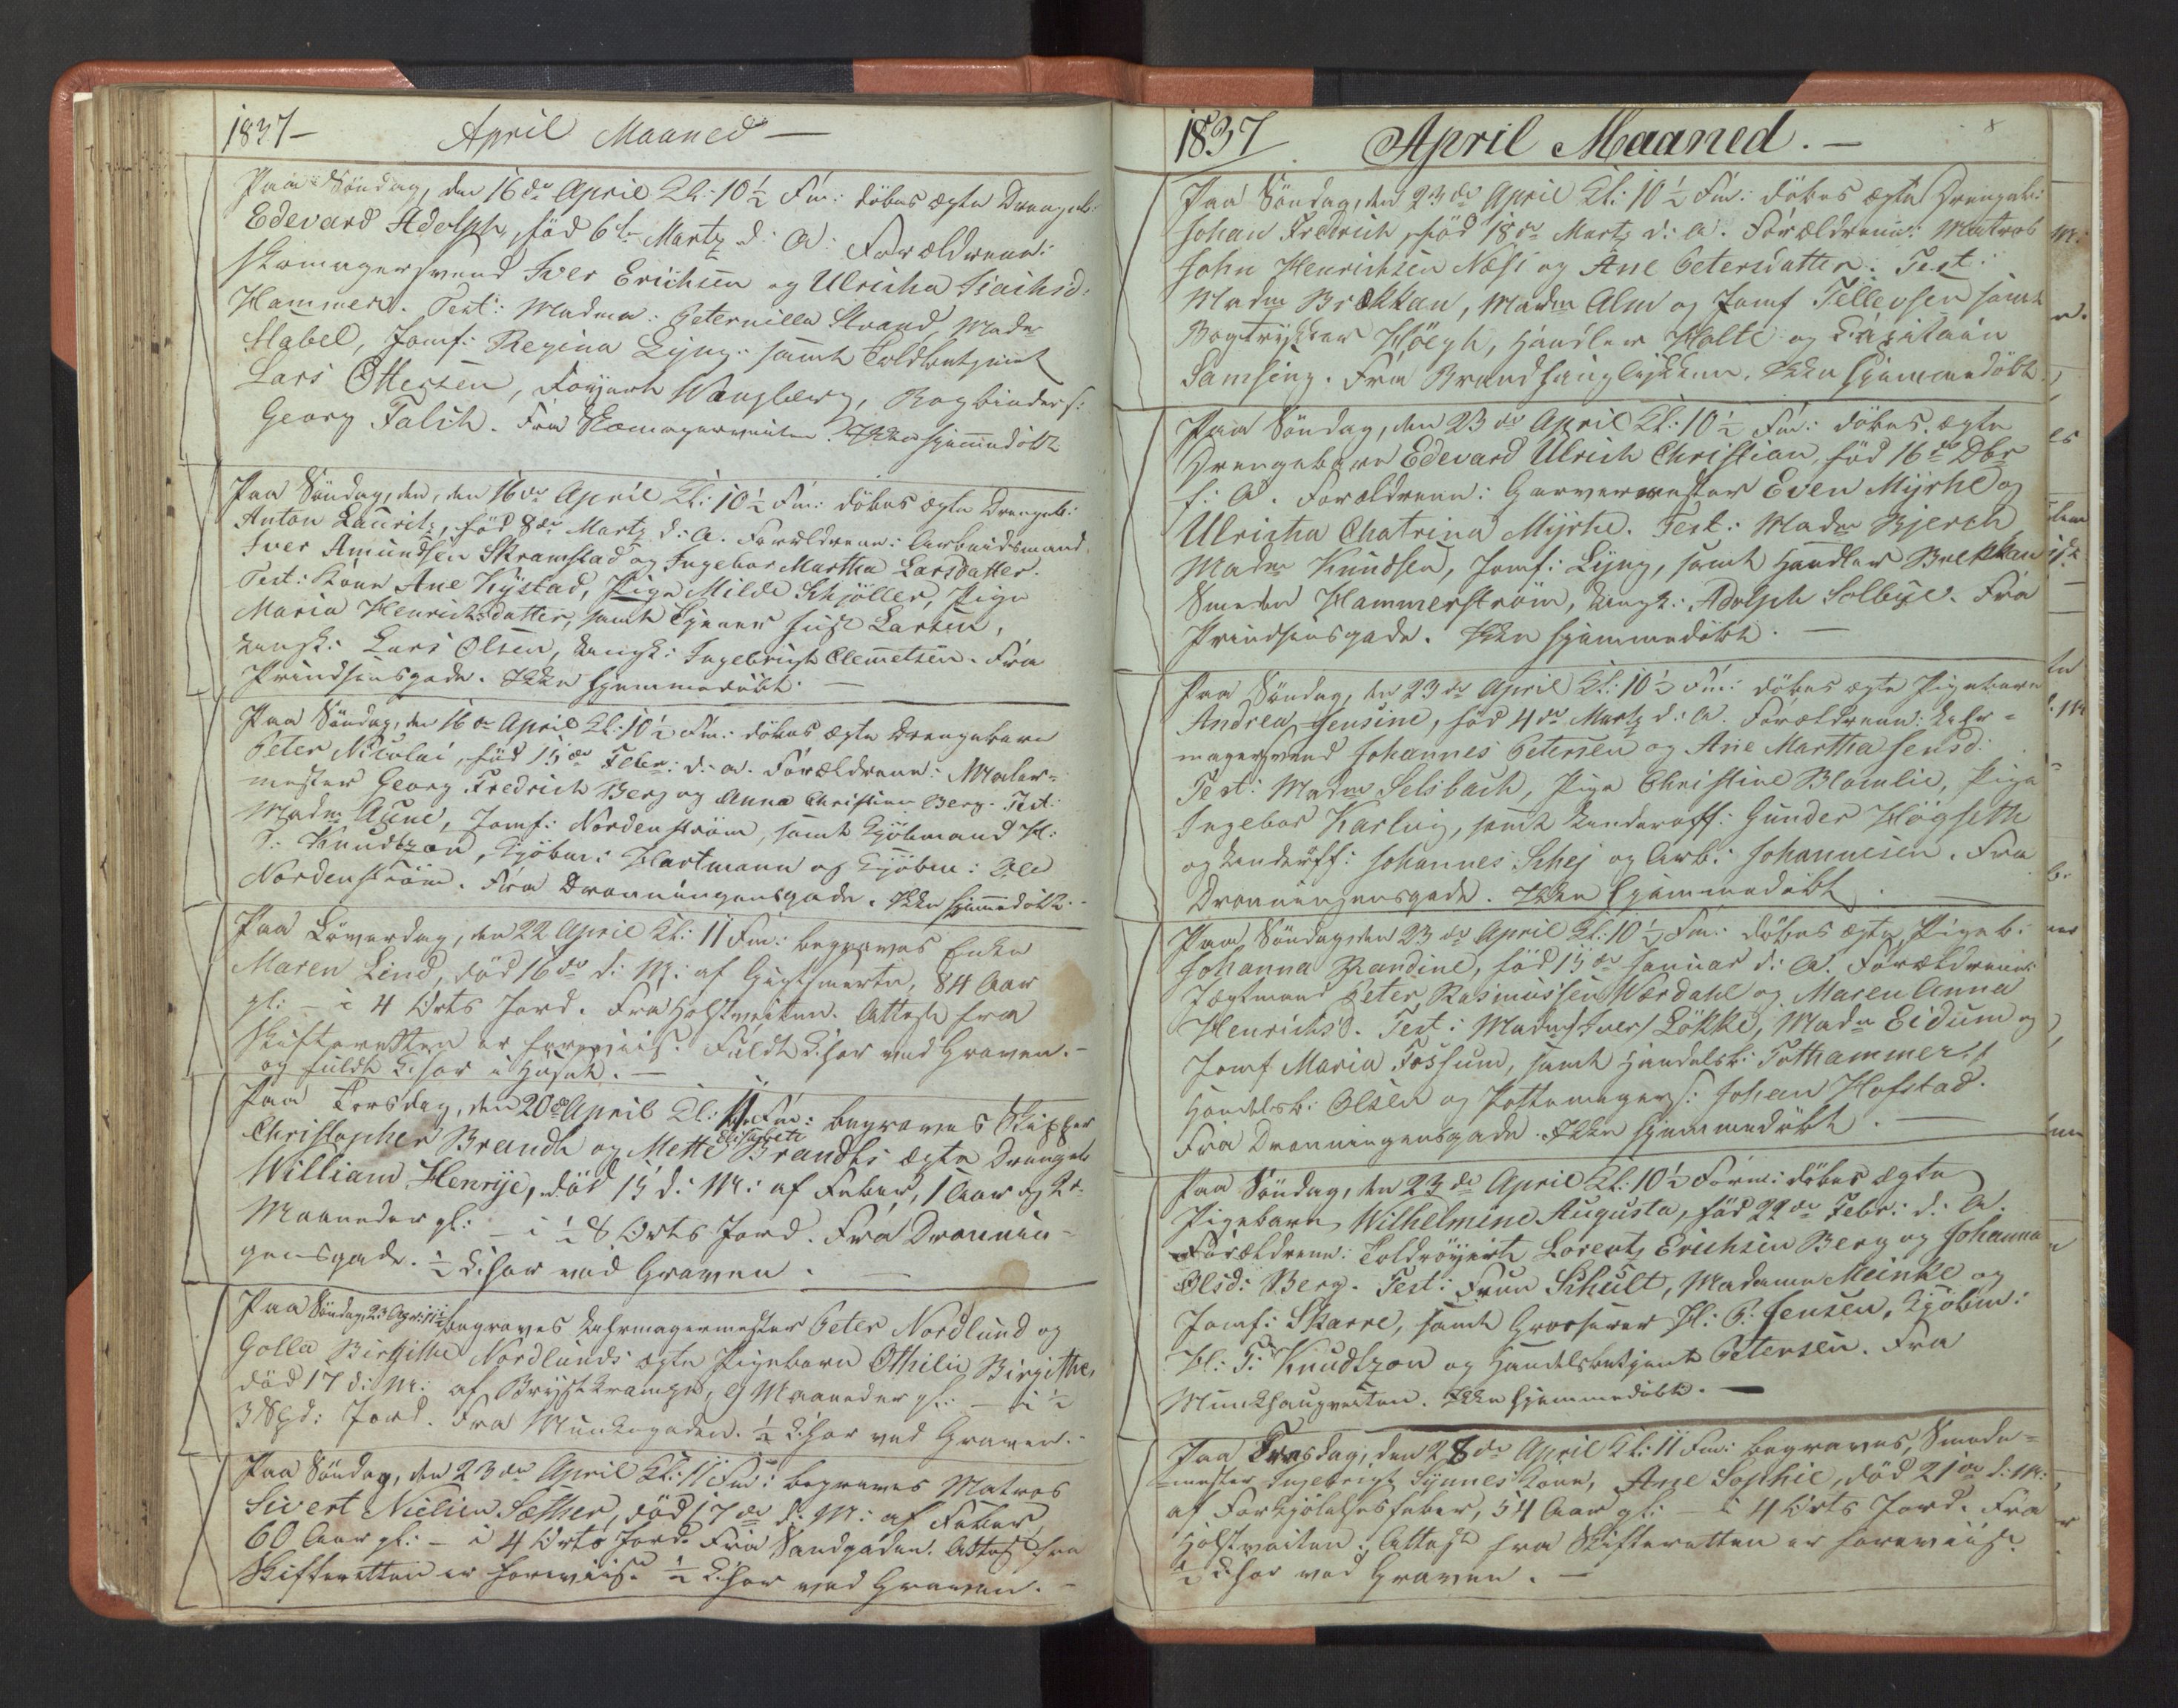 1837 – April Maaned –
Paa Söndag, den 16de April Kl: 10 1/2 Fm: döbes ægte Drengeb:
Edevard Adolph, föd 6te Martz d: A: Forældrene:
Skomagersvend Iver Erichsen og Ulricha Isachsd:
Hammer. Test: Madme: Peternille Strand, Madm
Stabel, Jomf: Regina Lyng samt Toldbetjent
Lars Ottersen, Wangberg, Bogbinders:
Georg Falch. Fra Skomagerveiten. Ikke hjemmedöbt
Paa Söndag, den, den 16de April Kl: 10 1/2 Fm: döbes ægte Drengeb:
Anton Lauritz, föd 8de Martz d: A. Forældrene: Arbeidsmand
Iver Amundsen Skramstad og Ingebor Martha Larsdatter.
Test: Kone Ane Kystad, Pige Milde Schjöller, Pige
Maria Henrichsdatter, samt Tjener Just Larsen,
Ungk: Lars Olsen, Ungk: Ingebrigt Clemetsen. Fra
Prindsensgade. Ikke hjemmedöbt. –
Paa Söndag, den 16de April Kl: 10 1/2 Fm: döbes ægte Drengebarn
Peter Nicolai, föd 15de Feber: d: A. Forældrene: Maler-
mester Georg Fredrich Berg og Anna Christine Berg. Test:
Madm: Aune, Jomf: Nordenström, samt Kjöbmand H:
T: Knudtzon, Kjöbm: Hartmann og Kjöbm: Ole
Nordenström. Fra Dronningensgade. Ikke hjemmedöbt. –
Paa Löverdag, den 22 April Kl: 11 Fm: begraves Enke
Maren Lind, död 16de d: M: af Gigtsmerte, 84 Aar
gl: – i 4 Orts Jord. Fra Holstveiten. Attest fra
Skifteretten er foreviist. Fuldt Chor ved Graven. –
og fuldt Chor i Huset. –
Paa Torsdag, den 20de April Kl: 11 Fm: begraves Skipper
Christopher Brandt og Mette Elisabeth Brandts ægte Drengeb
William Henrye, död 15 d: M: af Feber, 1 Aar og 2
Maaneder gl: – i 1/2 8 Orts Jord. Fra Dronnin-
gensgade. 1/2 Chor ved Graven. –
Paa Söndag, 23 Apr: 11 1/2 begraves Uhrmagermester Peter Nordlund og
Golla Birgitha Nordlunds ægte Pigebarn Othilie Birgithe,
död 17 d: M: af Brystkrampe, 9 Maaneder gl: – i 1/2
3 Spd: Jord. Fra Munkegaden. 1/2 Chor ved Graven. –
Paa Söndag, den 23de April Kl: 11 Fm: begraves Matros
Sivert Nielsen Sæther, död 17de d: M: af Feber
60 Aar gl: – i 4 Orts Jord. Fra Sandgaden. Attest fra
Skifteretten er foreviist. 1/2 Chor ved Graven. –
1837 April Maaned. –
Paa Söndag, den 23de April Kl: 10 1/2 Fm: döbes ægte Drengeb:
Johan Fredrich, föd 18de Martz d: A. Forældrene: Matros
John Henrichsen Næss og Ane Petersdatter. Test:
Madm Brækkan, Madm Alm og Jomf Tellevsen samt
Bogtrykker Höegh, Handler Holte og Capitain
Samsing. Fra Ikke hjemmedöbt.
Paa Söndag, den 23de April Kl: 10 1/2 Fm: döbes ægte
Drengebarn Edevard Ulrich Christian, föd 16de Dbr
f: A. Forældrene: Garvermester Even Myrhe og
Ulricha Chatrina Myrhe. Test: Madm Bjerch
Madm Knudsen, Jomf: Lyng, samt Handler Brekkan
Smeden Hammerström, Ungk: Adolph Solbye. Fra
Prindsensgade. Ikke hjemmedöbt. –
Paa Söndag, den 23de April Kl: 10 1/2 Fm: döbes ægte Pigebarn
Andrea Jensine, föd 4de Martz d: A. Forældrene: Uhr-
magersvend Johannes Petersen og Ane Martha Jensd:
Test: Madm Selsbach, Pige Christine Blomlie, Pige
Ingebor Karlvig, samt Underoff: Gunder Högseth
og Underoff: Johannes Schej og Arb: Johannesen. Fra
Dronningensgade. Ikke hjemmedöbt. –
Paa Söndag, den 23de April Kl: 10 1/2 Fm: döbes ægte Pigeb:
Johanna Randine, föd 15de Januar d: A. Forældrene:
Jægtmand Peter Rasmussen Wærdahl og Maren Anna
Henrichsd. Test: Madm Iver Lökke, Madm Eidum og
Jomf Maria Fossum, samt Handelsb: Tothammer
Handelsb: Olsen og Pottemagers: Johan Hofstad.
Fra Dronningensgade. Ikke hjemmedöbt. –
Paa Söndag, den 23de April Kl: 10 1/2 Form: döbes ægte
Pigebarn Wilhelmine Augusta, föd 22de Febr: d: A:
Forældrene: Toldröyert Lorentz Erichsen Berg og Johanna
Olsd: Berg. Test: Frue Schult, Madame Meinke og
Jomf: Skarre, samt Grosserer H: P: Jensen, Kjöbm:
H: T: Knudtzon og Handelsbetjent Petersen. Fra
Munkhaugveiten. Ikke hjemmedöbt. –
Paa den 28de April Kl: 11 Fm: begraves Smede-
mester Ingebrigt Synnes Kone, Ane Sophie, död 21de d: M:
af Forkjölelsesfeber, 54 Aar gl: – i 4 Orts Jord. Fra
Holstveiten. Attest fra Skifteretten er foreviist.
1/2 Chor ved Graven. –